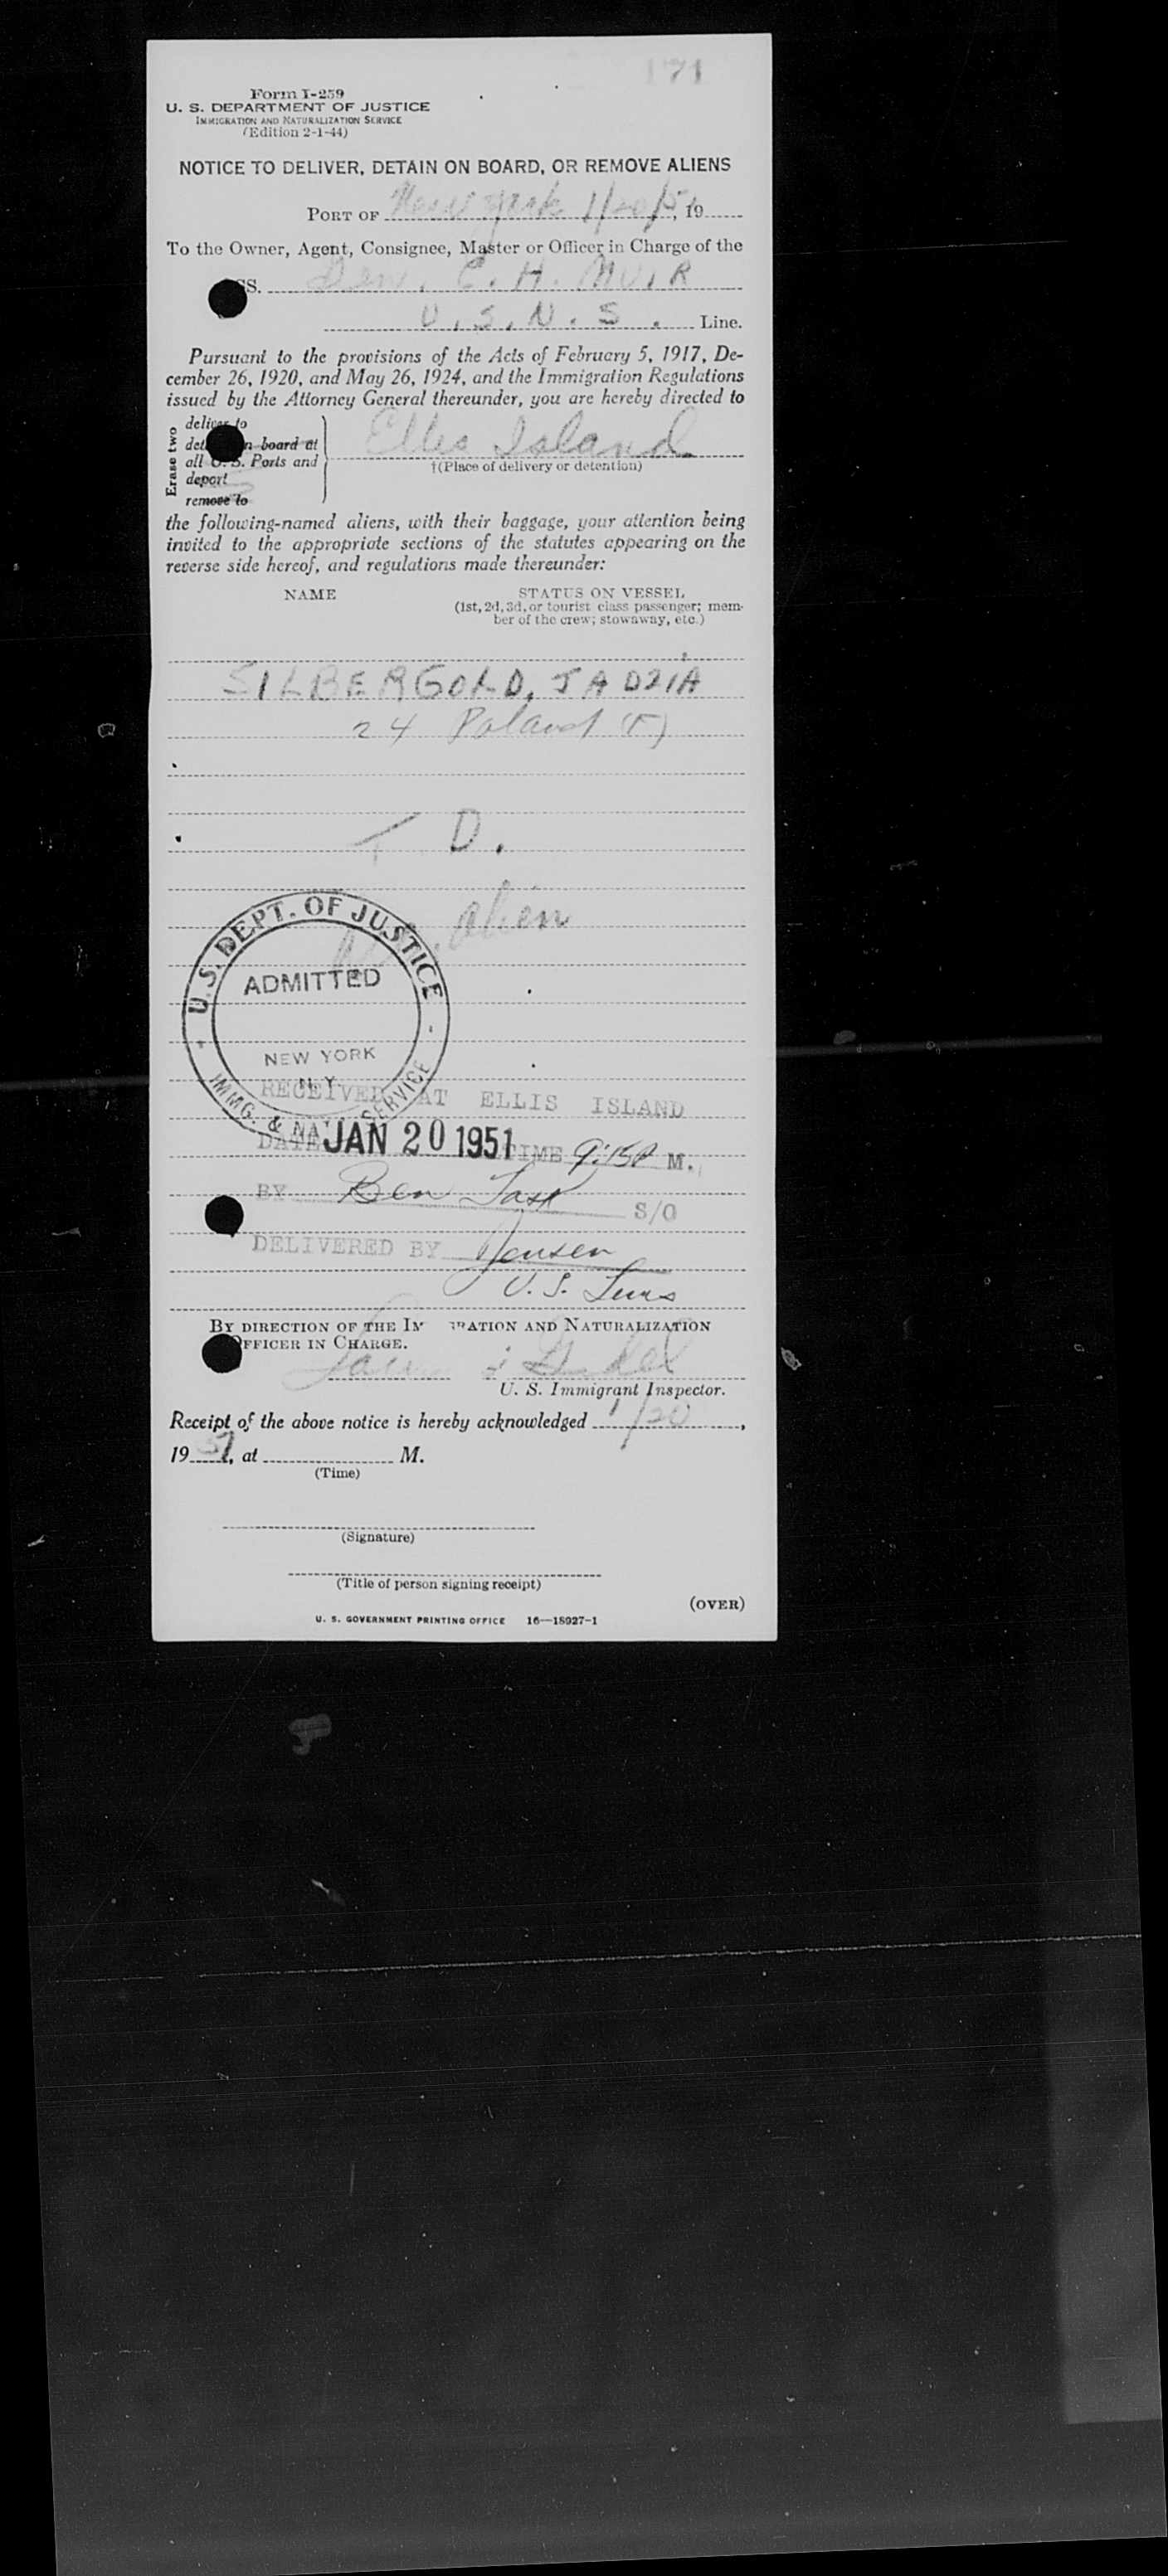 171
Form I-259
U. S. DEPARTMENT OF JUSTICE
IMMIGRATION AND NATURALIZATION SERVICE
(Edition 2-1-44)
NOTICE TO DELIVER, DETAIN ON BOARD, OR REMOVE ALIENS
PORT OF New York 1/20/51, 19
To the Owner, Agent, Consignee, Master or Officer in Charge of the
SS. Gen. C. H. MUIR
U.S.N.S. Line.
Pursuant to the provisions of the Acts of February 5, 1917, De-
cember 26, 1920, and May 26, 1924, and the Immigration Regulations
issued by the Attorney General thereunder, you are hereby directed to
Erase two
deliver to
n board at
all U. S. Ports and
deport
remove to
Ellis Island
†(Place of delivery or detention)
the following-named aliens, with their baggage, your attention being
invited to the appropriate sections of the statutes appearing on the
reverse side hereof, and regulations made thereunder:
NAME
STATUS ON VESSEL
(1st, 2d, 3d, or tourist class passenger; mem-
ber of the crew; stowaway, etc.)
SILBERGOLD, JADZIA
24 Poland (F)
T. D.
alien
U.S. DEPT. OF JUSTICE
ADMITTED
NEW YORK
N.Y.
IMMG. & NAT. SERVICE
RECEIVED AT ELLIS ISLAND
DATE JAN 20 1951 TIME 9:15P M.
BY Ben S/O
DELIVERED BY Jensen
U.S. Lines
BY DIRECTION OF THE IM RATION AND NATURALIZATION
OFFICER IN CHARGE.
U. S. Immigrant Inspector.
Receipt of the above notice is hereby acknowledged 1/20,
19 51, at M.
(Time)
(Signature)
(Title of person signing receipt)
(OVER)
U. S. GOVERNMENT PRINTING OFFICE 16—18927-1